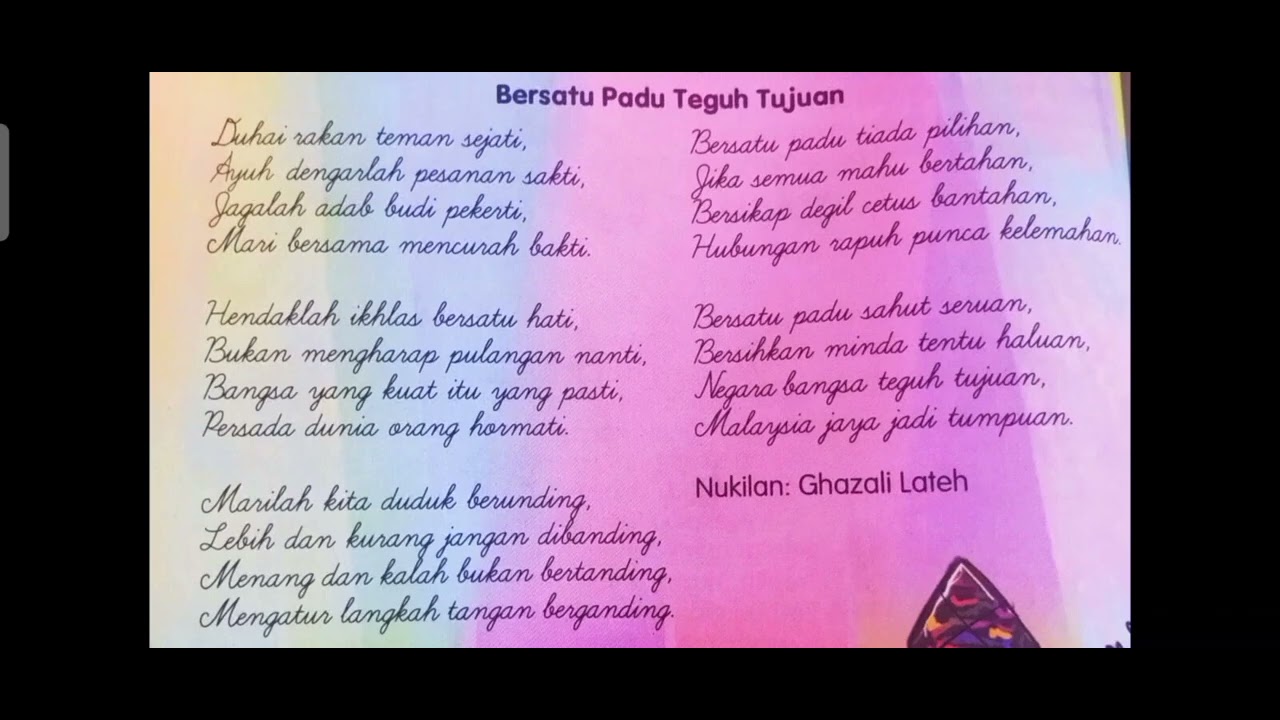 Bersatu Padu Teguh Tujuan
Duhai rakan teman sejati,
Ayuh dengarlah pesanan sakti,
Jagalah adab budi pekerti,
Mari bersama mencurah bakti.
Hendaklah ikhlas bersatu hati,
Bukan mengharap pulangan nanti,
Bangsa yang kuat itu yang pasti,
Persada dunia orang hormati.
Marilah kita duduk berunding,
Lebih dan kurang jangan dibanding,
Menang dan kalah bukan bertanding,
Mengatur langkah tangan berganding.
Bersatu padu tiada pilihan,
Jika semua mahu bertahan,
Bersikap degil cetus bantahan,
Hubungan rapuh punca kelemahan.
Bersatu padu sahut seruan,
Bersihkan minda tentu haluan,
Negara bangsa teguh tujuan,
Malaysia jaya jadi tumpuan.
Nukilan: Ghazali Lateh